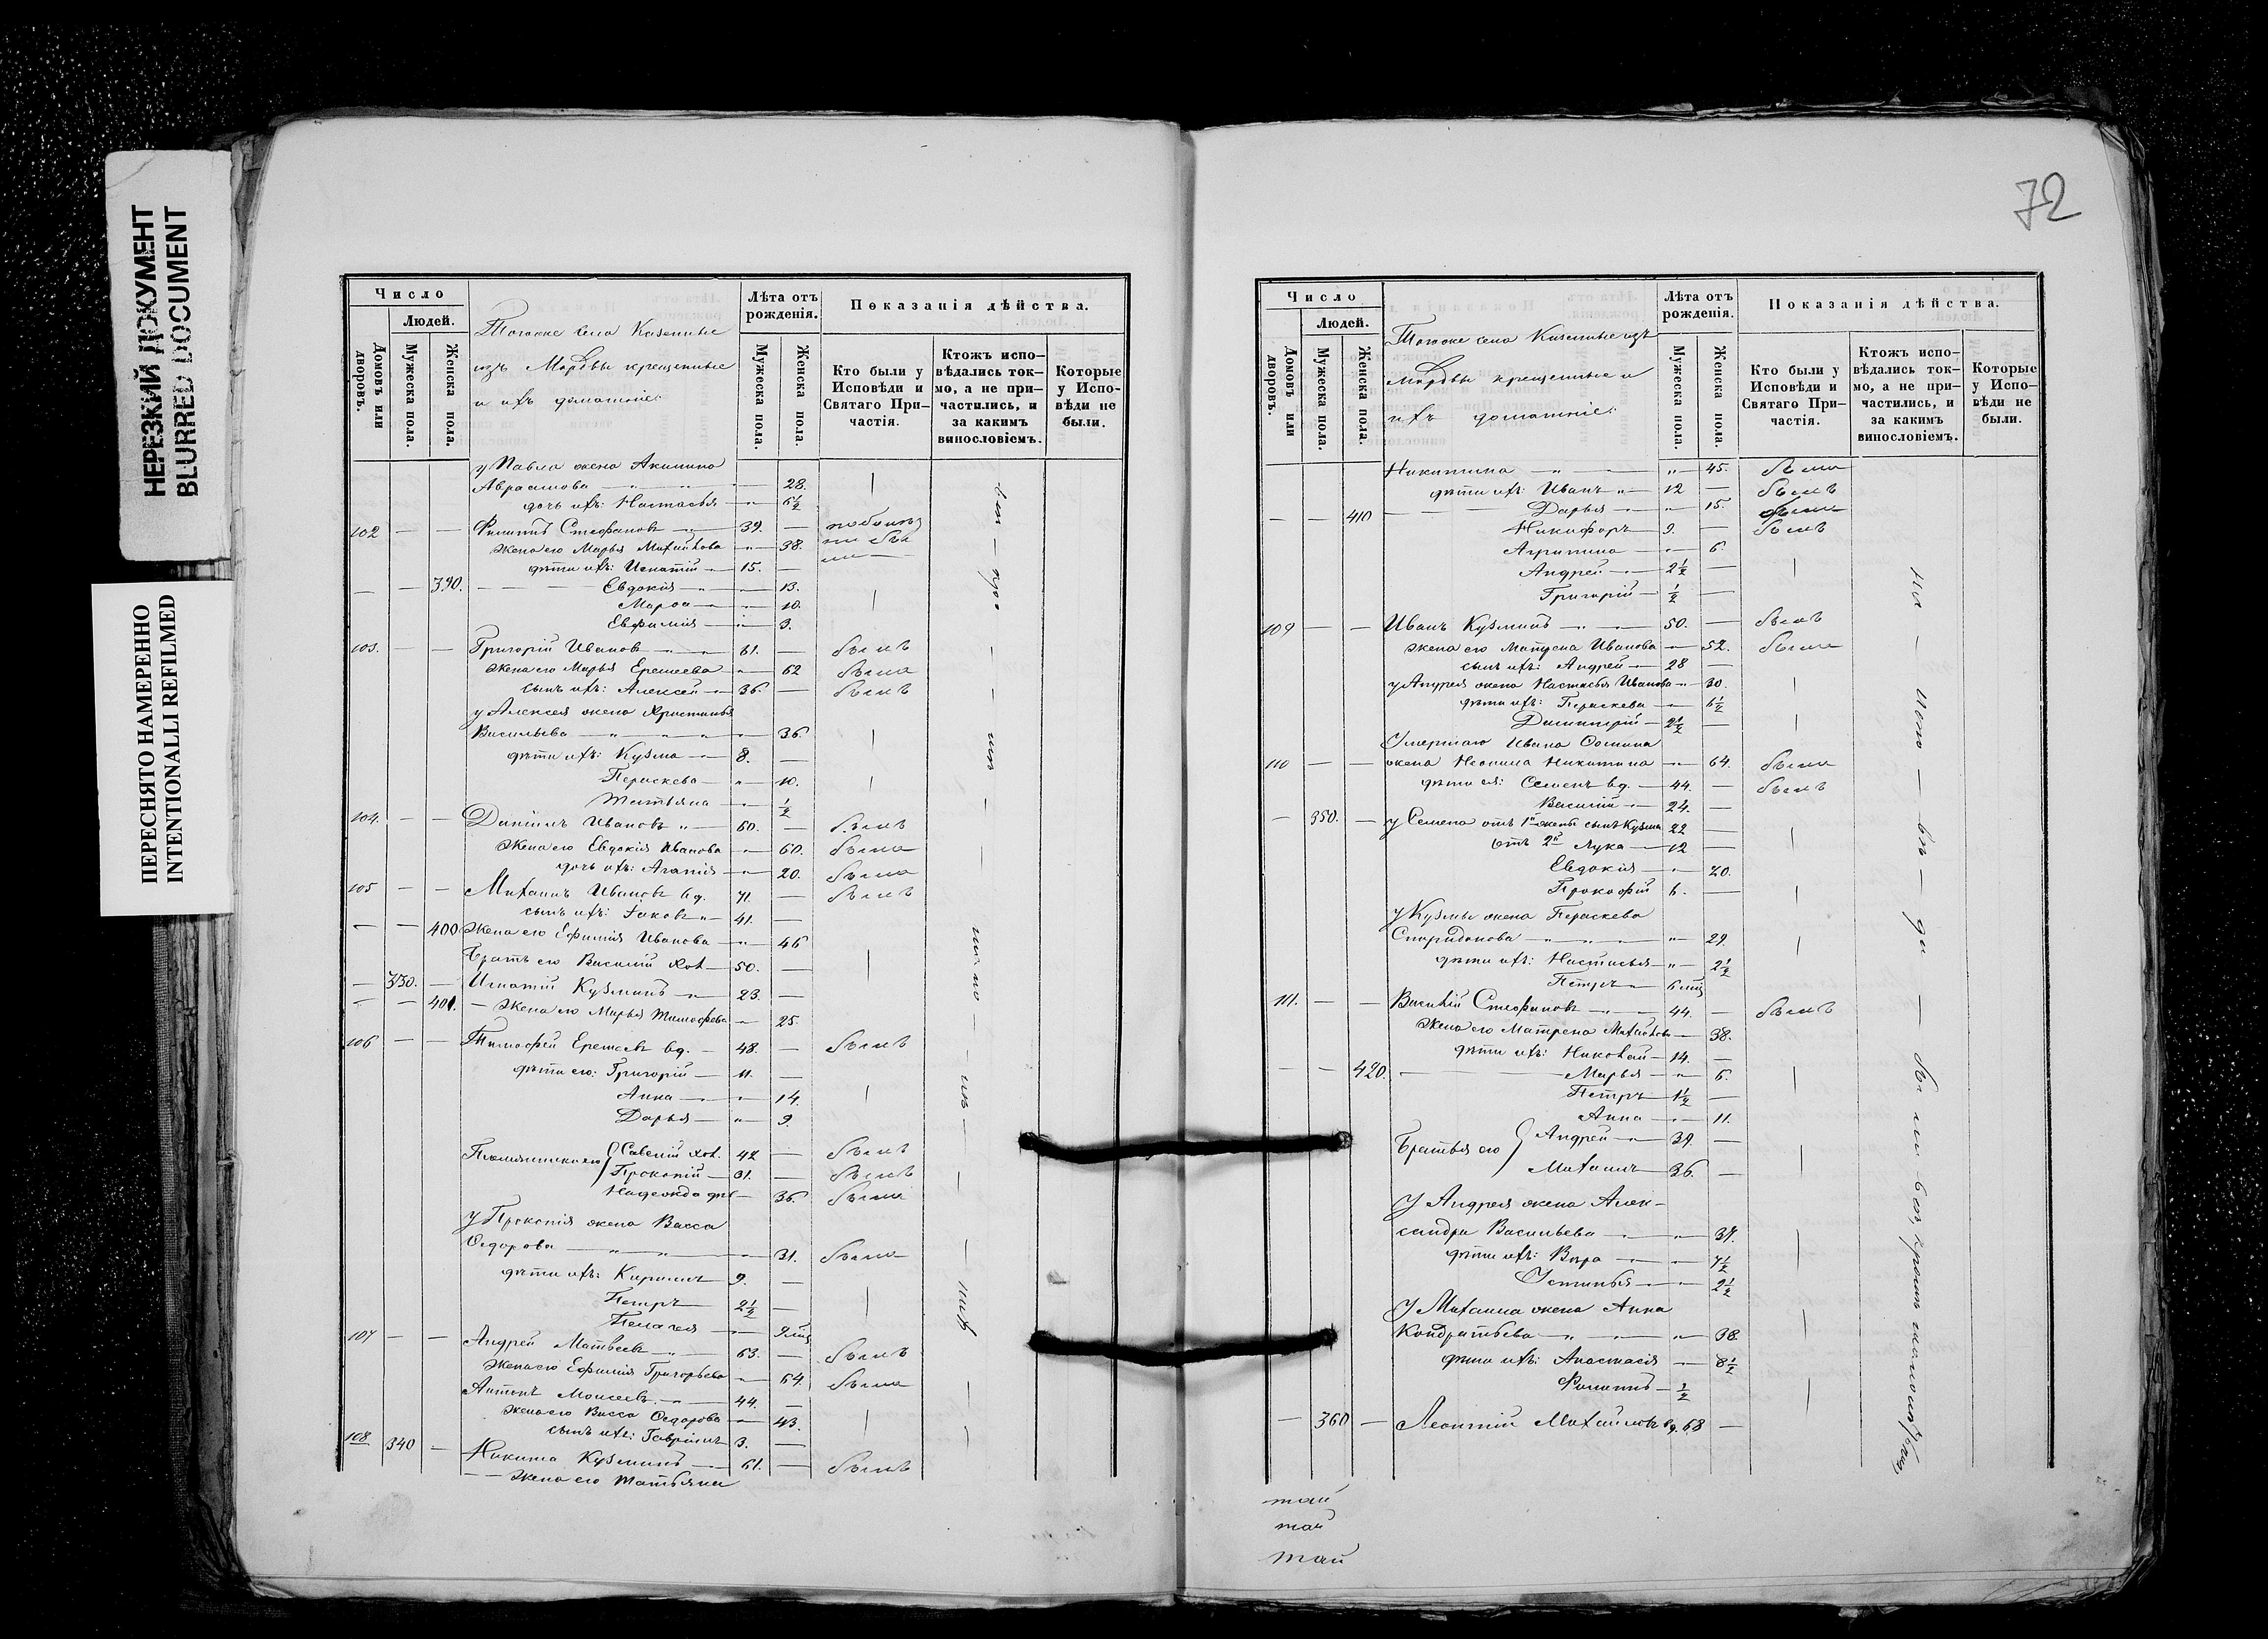 НЕРЕЗКИЙ ДОКУМЕНТ
BLURRED DOCUMENT
ПЕРЕСНЯТО НАМЕРЕННО
INTENTIONALLI REFILMED
Число
Людей.
Домовъ или дворовъ.
Мужеска пола.
Женска пола.
Тогоже села Казенные
изъ Мордвы крещенные
и ихъ домашніе:
Лѣта отъ рожденія.
Мужеска пола.
Женска пола.
Показанія дѣйства.
Кто были у Исповѣди и Святаго При-частія.
Ктожъ испо-вѣдались ток-мо, а не при-частились, и за какимъ винословіемъ.
Которые у Испо-вѣди не были.
у Павла жена Акилина
Авраамова — 28.
дочь ихъ: Настасья — 6½
102 — — Филиппъ Стефановъ — 39. —
жена его Марья Михайлова — 38.
дѣти ихъ: Игнатій — 15. —
— — 390. — Евдокія — 13.
Марѳа — 10.
Евфимія — 3.
103. — — Григорій Ивановъ — 61. — былъ
жена его Марья Еремеева — 62 была
сынъ ихъ: Алексей — 36. — былъ
у Алексея жена Христинья
Васильева — 36.
дѣти ихъ: Кузма — 8. —
Параскева — 10.
Татьяна — ½
104. — — Даніилъ Ивановъ — 60. — былъ
жена его Евдокія Иванова — 60. была
дочь ихъ: Агапія — 20. была
105 — — Михаилъ Ивановъ вд. 71. — былъ
сынъ ихъ: Іаковъ — 41. —
— — 400. жена его Ефимія Иванова — 46
Братъ его Василій хол. — 50. —
— 330. — Игнатій Кузминъ — 23. —
— — 401. — жена его Марья Тимофеева — 25.
106 — — Тимофей Еремеевъ вд. — 48. — былъ
дѣти его: Григорій — 11. —
Анна — 14.
Дарья — 9.
Племянники его Савелій хол. 42 — былъ
Прокопій — 31. — былъ
Надежда дѣв — 36. была
У Прокопія жена Васса
Ѳедорова — 31. была
дѣти ихъ: Кириллъ 9. —
Петръ 2½ —
Пелагея —
107 — — Андрей Матвеевъ — 63. — былъ
жена его Ефимія Григорьева — 64. была
Антонъ Моисеевъ — 44. —
жена его Васса Ѳедорова — 43.
сынъ ихъ: Гавріилъ 3. —
108 340 — Никита Кузминъ — 61. — былъ
— — жена его Татьяна
72
Число
Людей.
Домовъ или дворовъ.
Мужеска пола.
Женска пола.
Тогоже села Казенные изъ
Мордвы крещенные и
ихъ домашніе:
Лѣта отъ рожденія.
Мужеска пола.
Женска пола.
Показанія дѣйства.
Кто были у Исповѣди и Святаго При-частія.
Ктожъ испо-вѣдались ток-мо, а не при-частились, и за какимъ винословіемъ.
Которые у Испо-вѣди не были.
Никитина — 45. была
дѣти ихъ: Иванъ — 12 — былъ
— — 410 — Дарья — 15. была
Никифоръ — 9. — былъ
Агрипина — 6.
Андрей — 2½ —
Григорій — ½ —
109 — — Иванъ Кузминъ — 50. — былъ
жена его Матрена Иванова — 52. была
сынъ ихъ: Андрей — 28 —
у Андрея жена Настасья Иванова — 30.
дѣти ихъ: Параскева — 6½
Димитрій — 2½ —
Умершаго Ивана Ѳомина
110 — — жена Неонила Никитина — 64. была
дѣти ея: Семенъ вд. — 44. — былъ
Василій — 24. —
— 350. — у Семена отъ 1й жены сынъ Кузма 22 —
отъ 2й Лука — 12 —
Евдокія — 20.
Прокофій 6. —
у Кузмы жена Параскева
Спиридонова — 29.
дѣти ихъ: Настасья — 2½
Петръ —
111. — — Василій Стефановъ — 44. — былъ
жена его Матрена Михайлова — 38.
дѣти ихъ: Николай — 14. —
— — 420. — Марья — 6.
Петръ — 1½ —
Анна — 11.
Братья его Андрей — 39. —
Михаилъ — 36. —
У Андрея жена Алек-
сандра Васильева — 39.
дѣти ихъ: Вѣра — 7½
Устинья — 2½
У Михаила жена Анна
Кондратьева — 38
дѣти ихъ: Анастасія — 8½
Филиппъ — ½
— 360 — Леонтій Михайловъ вд. 68 —
тай
тай
тай